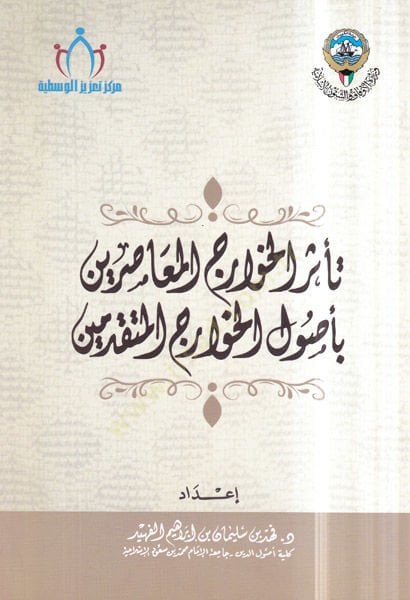 مركز تعزيز الوسطية
وزارة الأوقاف والشئون الإسلامية
تأثر الخوارج المعاصرين
بأصول الخوارج المتقدمين
إعداد
د. فهد بن سليمان بن إبراهيم الفهيد
كلية أصول الدين - جامعة الإمام محمد بن سعود الإسلامية